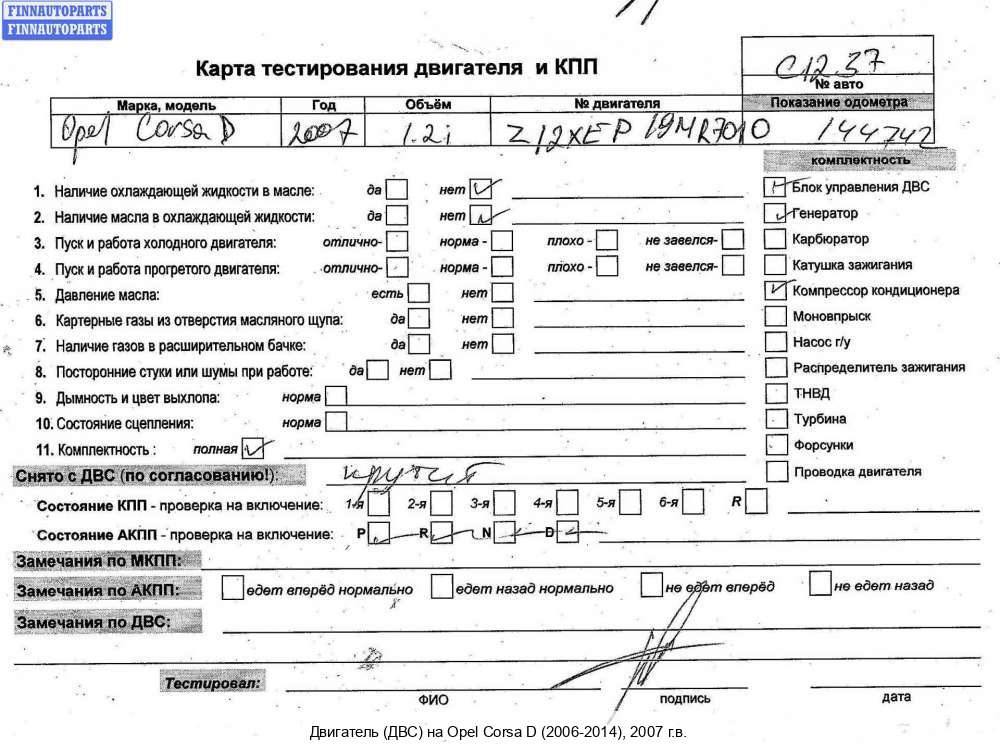 FINNAUTOPARTS
FINNAUTOPARTS
Карта тестирования двигателя и КПП
C1237
№ авто
Марка, модель Год Объём № двигателя Показание одометра
Opel Corsa D 2007 1.2i Z12XEP 19MR7010 144742
комплектность
1. Наличие охлаждающей жидкости в масле: да нет
Блок управления ДВС
2. Наличие масла в охлаждающей жидкости: да нет
Генератор
3. Пуск и работа холодного двигателя: отлично- норма - плохо - не завелся-
Карбюратор
4. Пуск и работа прогретого двигателя: отлично- норма - плохо - не завелся-
Катушка зажигания
5. Давление масла: есть нет
Компрессор кондиционера
6. Картерные газы из отверстия масляного щупа: да нет
Моновпрыск
7. Наличие газов в расширительном бачке: да нет
Насос г/у
8. Посторонние стуки или шумы при работе: да нет
Распределитель зажигания
9. Дымность и цвет выхлопа: норма
ТНВД
10. Состояние сцепления: норма
Турбина
11. Комплектность : полная
Форсунки
Снято с ДВС (по согласованию!): крутит
Проводка двигателя
Состояние КПП - проверка на включение: 1-я 2-я 3-я 4-я 5-я 6-я R
Состояние АКПП - проверка на включение: P R N D
Замечания по МКПП:
Замечания по АКПП: едет вперёд нормально едет назад нормально не едет вперёд не едет назад
Замечания по ДВС:
Тестировал:
ФИО подпись дата
Двигатель (ДВС) на Opel Corsa D (2006-2014), 2007 г.в.